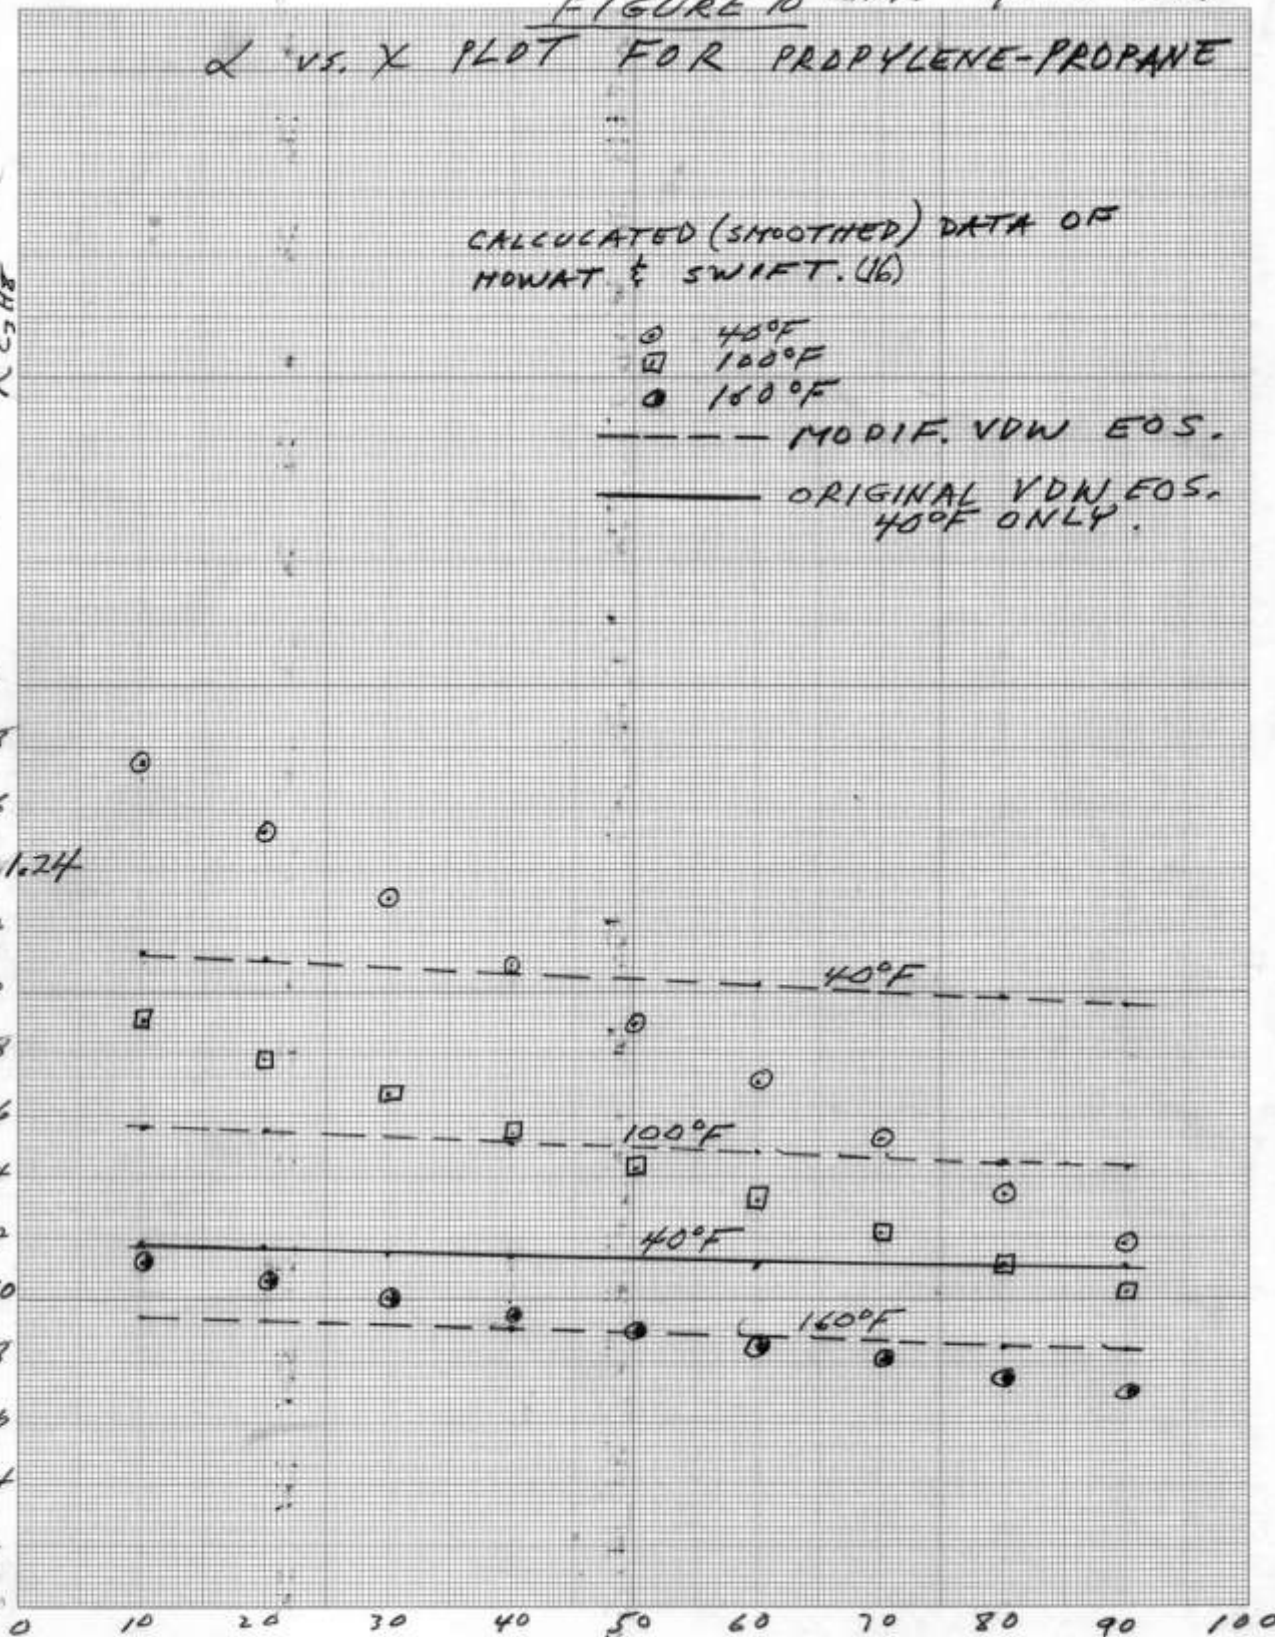 FIGURE 10
α vs. X PLOT FOR PROPYLENE-PROPANE
CALCULATED (SMOOTHED) DATA OF
HOWAT & SWIFT. (16)
40°F
100°F
160°F
MODIF. VDW EOS.
ORIGINAL VDW EOS.
40°F ONLY.
K C3H8
8
6
1.24
40°F
8
6
100°F
4
2
40°F
10
160°F
8
6
4
0 10 20 30 40 50 60 70 80 90 100